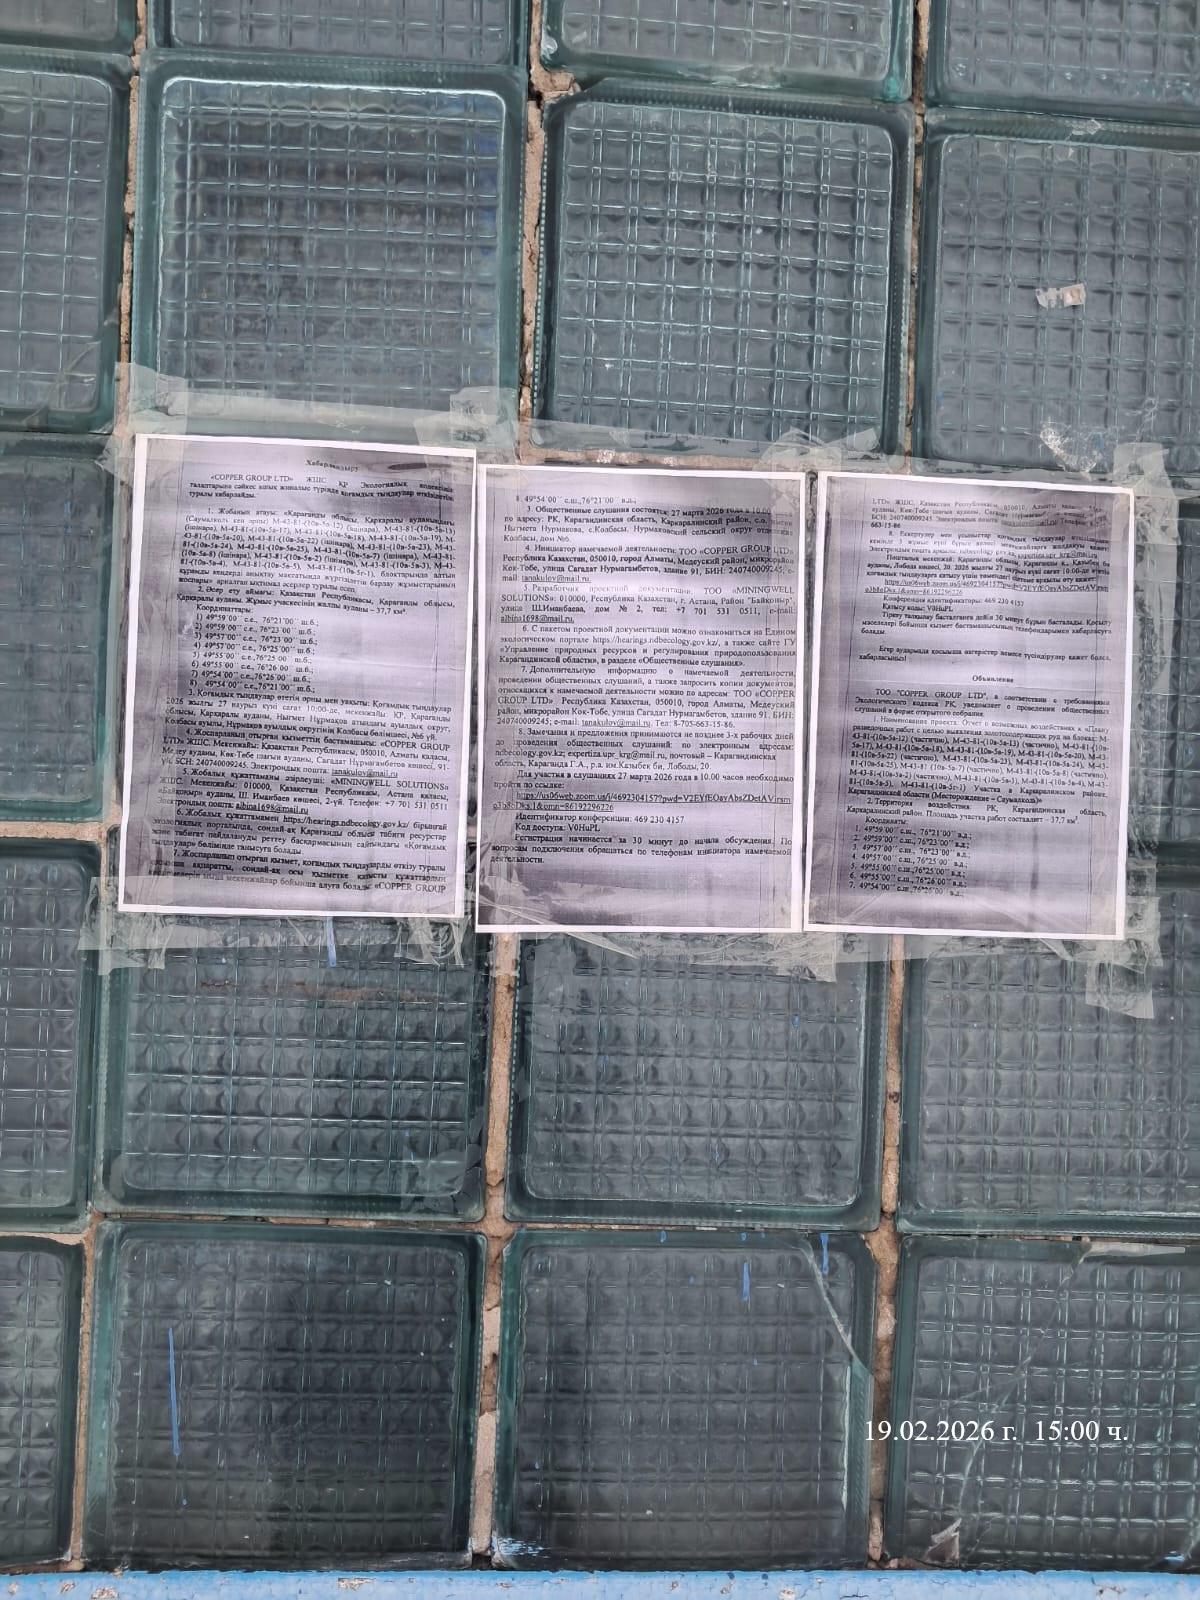 Хабарландыру
«COPPER GROUP LTD» ЖШС ҚР Экологиялық кодексінің
талаптарына сәйкес ашық жиналыс түрінде қоғамдық тыңдаулар өткізілетін
туралы хабарлайды.
1. Жобаның атауы: «Қарағанды облысы, Қарқаралы ауданындағы
(Саумалкөл кен орны) М-43-81-(10в-5а-12) (ішінара), М-43-81-(10в-5а-13)
(ішінара), М-43-81-(10в-5а-17), М-43-81-(10в-5а-18), М-43-81-(10в-5а-19), М-
43-81-(10в-5а-20), М-43-81-(10в-5а-22) (ішінара), М-43-81-(10в-5а-23), М-43-
81-(10в-5а-24), М-43-81-(10в-5а-25), М-43-81-(10е-5а-2) (ішінара), М-43-81-
(10е-5а-3)
блоктарында алтын
құрамды кендерді анықтау мақсатында жүргізілетін барлау жұмыстарының
жоспары» арналған ықтимал әсерлер туралы есеп.
2. Әсер ету аймағы: Қазақстан Республикасы, Қарағанды облысы,
Қарқаралы ауданы. Жұмыс учаскесінің жалпы ауданы – 37,7 км².
Координаттары:
1) 49°59´00´´ с.е., 76°21´00´´ ш.б.;
2) 49°59´00´´ с.е., 76°23´00´´ ш.б.;
3) 49°57´00´´ с.е., 76°23´00´´ ш.б.;
4) 49°57´00´´ с.е., 76°25´00´´ ш.б.;
5) 49°55´00´´ с.е., 76°25´00´´ ш.б.;
6) 49°55´00´´ с.е., 76°26´00´´ ш.б.;
7) 49°54´00´´ с.е., 76°26´00´´ ш.б.;
8) 49°54´00´´ с.е., 76°21´00´´ ш.б.;
3. Қоғамдық тыңдаулар өтетін орны мен уақыты: Қоғамдық тыңдаулар
2026 жылғы 27 наурыз күні сағат 10:00-де, мекенжайы: ҚР, Қарағанды
облысы, Қарқаралы ауданы, Нығмет Нұрмақов атындағы ауылдық округ,
Қолбасы ауылы, Нұрмақов ауылдық округінің Қолбасы бөлімшесі, №6 үй.
4. Жоспарланып отырған қызметтің бастамашысы: «COPPER GROUP
LTD» ЖШС. Мекенжайы: Қазақстан Республикасы, 050010, Алматы қаласы,
Медеу ауданы, Көк-Төбе шағын ауданы, Сағадат Нұрмағамбетов көшесі, 91-
үй. БСН: 240740009245. Электрондық пошта: tanakulov@mail.ru
5. Жобалау құжаттамасын әзірлеуші: «MININGWELL SOLUTIONS»
ЖШС. Мекенжайы: 010000, Қазақстан Республикасы, Астана қаласы,
«Байқоңыр» ауданы, Ш. Иманбаев көшесі, 2-үй. Телефон: +7 701 531 0511
Электрондық пошта: albina1698@mail.ru
6. Жобалық құжаттамамен https://hearings.ndbecology.gov.kz/ бірыңғай
экологиялық порталында, сондай-ақ Қарағанды облысы табиғи ресурстар
және табиғат пайдалануды реттеу басқармасының сайтындағы «Қоғамдық
тыңдаулар» бөлімінде танысуға болады.
7. Жоспарланып отырған қызмет, қоғамдық тыңдауларды өткізу туралы
қосымша ақпаратты, сондай-ақ осы қызметке қатысты құжаттардың
көшірмелерін мына мекенжайлар бойынша алуға болады: «COPPER GROUP
8. 49°54´00´´ с.ш., 76°21´00´´ в.д.;
3. Общественные слушания состоятся: 27 марта 2026 года в 10.00
по адресу: РК, Карагандинская область, Каркаралинский район, с.о. имени
Ныгмета Нурмакова, с.Колбасы, Нурмаковский сельский округ отделение
Колбасы, дом №6.
4. Инициатор намечаемой деятельности: ТОО «COPPER GROUP LTD»
Республика Казахстан, 050010, город Алматы, Медеуский район, микрорайон
Кок-Тобе, улица Сагадат Нурмагамбетов, здание 91, БИН: 240740009245, e-
mail: tanakulov@mail.ru.
5. Разработчик проектной документации: ТОО «MININGWELL
SOLUTIONS»: 010000, Республика Казахстан, г. Астана, Район "Байконыр",
улица Ш.Иманбаева, дом № 2, тел: +7 701 531 0511, e-mail:
albina1698@mail.ru.
6. С пакетом проектной документации можно ознакомиться на Едином
экологическом портале https://hearings.ndbecology.gov.kz/, а также сайте ГУ
«Управление природных ресурсов и регулирования природопользования
Карагандинской области», в разделе «Общественные слушания».
7. Дополнительную информацию о намечаемой деятельности,
проведении общественных слушаний, а также запросить копии документов,
относящихся к намечаемой деятельности можно по адресам: ТОО «COPPER
GROUP LTD» Республика Казахстан, 050010, город Алматы, Медеуский
район, микрорайон Кок-Тобе, улица Сагадат Нурмагамбетов, здание 91. БИН:
240740009245; e-mail: tanakulov@mail.ru. Тел: 8-705-663-15-86.
8. Замечания и предложения принимаются не позднее 3-х рабочих дней
до проведения общественных слушаний: по электронным адресам:
ndbecology.gov.kz; expertiza.upr_krg@mail.ru, почтовый – Карагандинская
область, Караганда Г.А., р.а. им.Казыбек би, Лободы, 20.
Для участия в слушаниях 27 марта 2026 года в 10.00 часов необходимо
пройти по ссылке:
Идентификатор конференции: 469 230 4157
Код доступа: V0HuPL
Регистрация начинается за 30 минут до начала обсуждения. По
вопросам подключения обращаться по телефонам инициатора намечаемой
деятельности.
LTD» ЖШС. Қазақстан Республикасы, 050010, Алматы қаласы, Медеу
ауданы,
БСН: 240740009245 Электрондық пошта:
663-15-86
8. Ескертулер мен ұсыныстар қоғамдық тыңдаулар өткізілгенге
Пошталық мекенжай: Қарағанды облысы, Қарағанды қ., Қазыбек би
ауданы, Лобода көшесі, 20. 2026 жылғы 27 наурыз күні сағат 10:00-де өтетін
қоғамдық тыңдауларға қатысу үшін төмендегі сілтеме арқылы өту қажет:
Конференция идентификаторы: 469 230 4157
Қатысу коды: V0HuPL
Тіркеу талқылау басталғанға дейін 30 минут бұрын басталады. Қосылу
мәселелері бойынша қызмет бастамашысының телефондарымен хабарласуға
болады.
Егер аударында қосымша өзгерістер немесе түсіндірулер қажет болса,
хабарласыңыз!
Объявление
ТОО "COPPER GROUP LTD", в соответствии с требованиями
Экологического кодекса РК, уведомляет о проведении общественных
слушаний в форме открытого собрания.
1. Наименование проекта: Отчет о возможных воздействиях к «Плану
разведочных работ с целью выявления золотосодержащих руд на блоках: М-
43-81-(10в-5а-12) (частично), М-43-81-(10в-5а-13) (частично), М-43-81-(10в-
5а-17), М-43-81-(10в-5а-18), М-43-81-(10в-5а-19), М-43-81-(10в-5а-20), М-43-
81-(10в-5а-22) (частично), М-43-81-(10в-5а-23), М-43-81-(10в-5а-24), М-43-
Участка в Каркаралинском районе,
Карагандинской области (Месторождение – Саумалколь)»
2. Территория воздействия: РК, Карагандинская область,
Каркаралинский район. Площадь участка работ составляет – 37,7 км².
Координаты:
1. 49°59´00´´ с.ш., 76°21´00´´ в.д.;
2. 49°59´00´´ с.ш., 76°23´00´´ в.д.;
3. 49°57´00´´ с.ш., 76°23´00´´ в.д.;
4. 49°57´00´´ с.ш., 76°25´00´´ в.д.;
5. 49°55´00´´ с.ш., 76°25´00´´ в.д.;
6. 49°55´00´´ с.ш., 76°26´00´´ в.д.;
7. 49°54´00´´ с.ш., 76°26´00´´ в.д.;
19.02.2026 г. 15:00 ч.